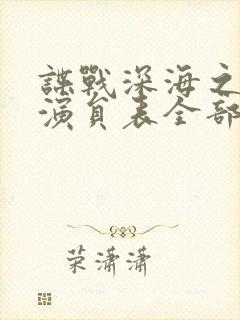 諜戰深海之
演員表全部
荣潇潇